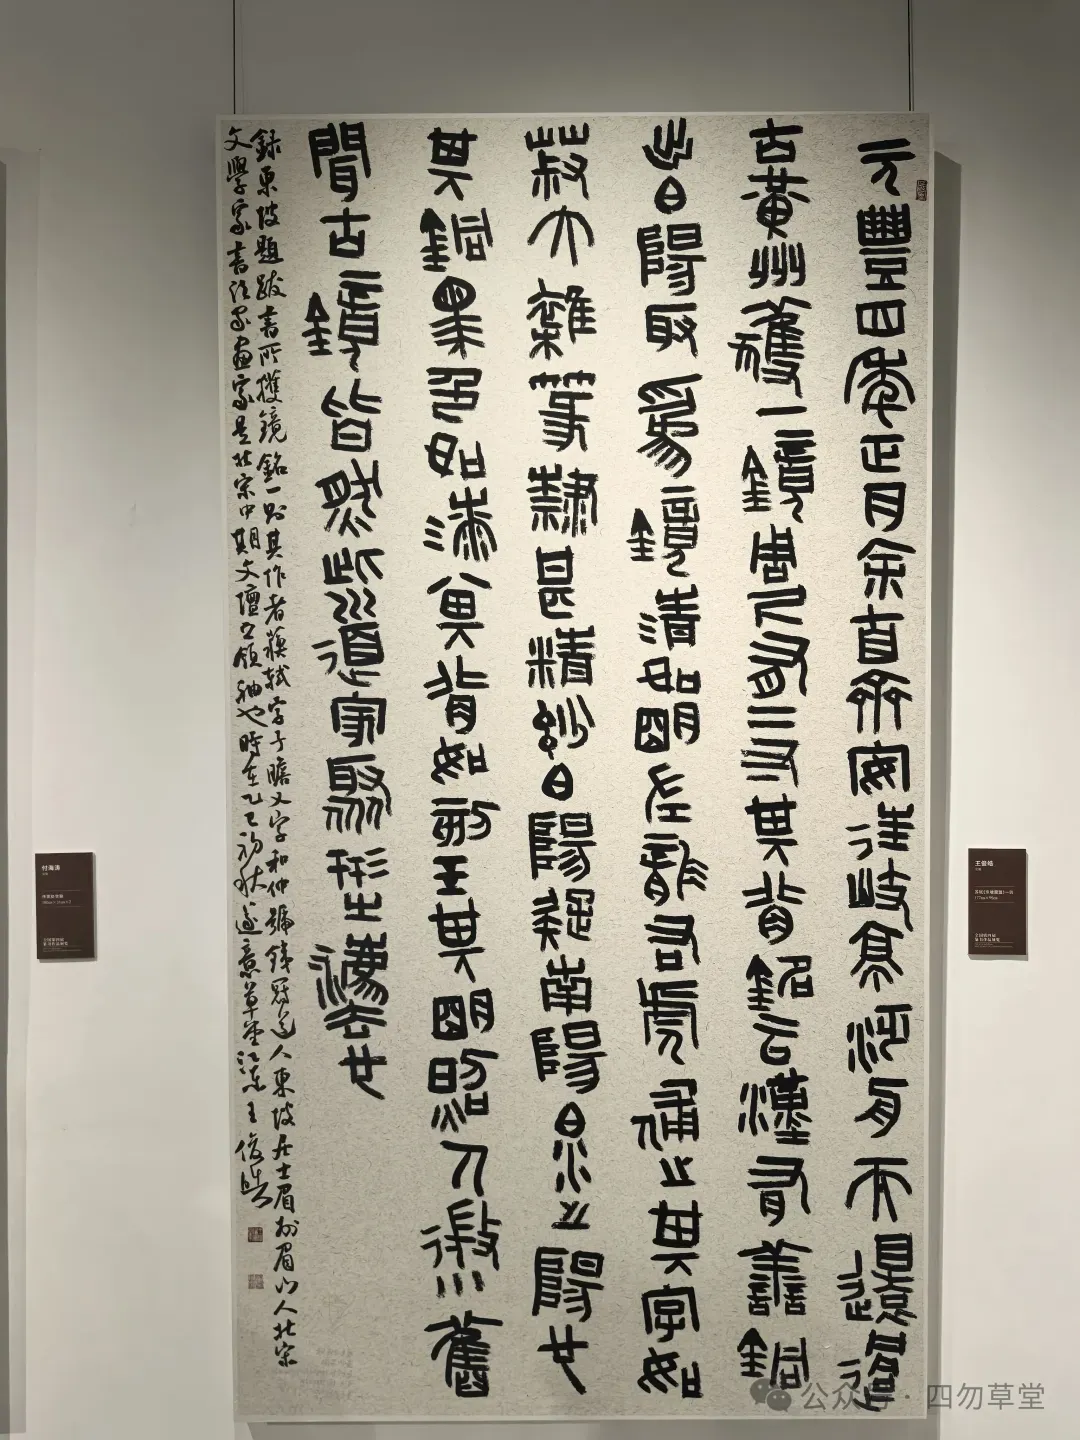 元豐四年正月余自齊安往岐亭泛舟而還過
古黃州獲一鏡周尺有二寸其背銘云漢有善銅
出白陽取爲鏡清如明左龍右虎俌之其字如
菽大雜篆隸甚精妙白陽疑南陽白水之陽也
其銅黑色如漆其背如刻玉其明照人微小舊
聞古鏡皆然此道家聚形之法也
錄東坡題跋書所獲鏡銘一則其作者蘇軾字子瞻又字和仲號鐵冠道人東坡居士眉州眉山人北宋
文學家書法家畫家是北宋中期文壇之領袖也時在乙巳初秋遂意草堂江蘇王俊皓
付海涛
公众号·四勿草堂